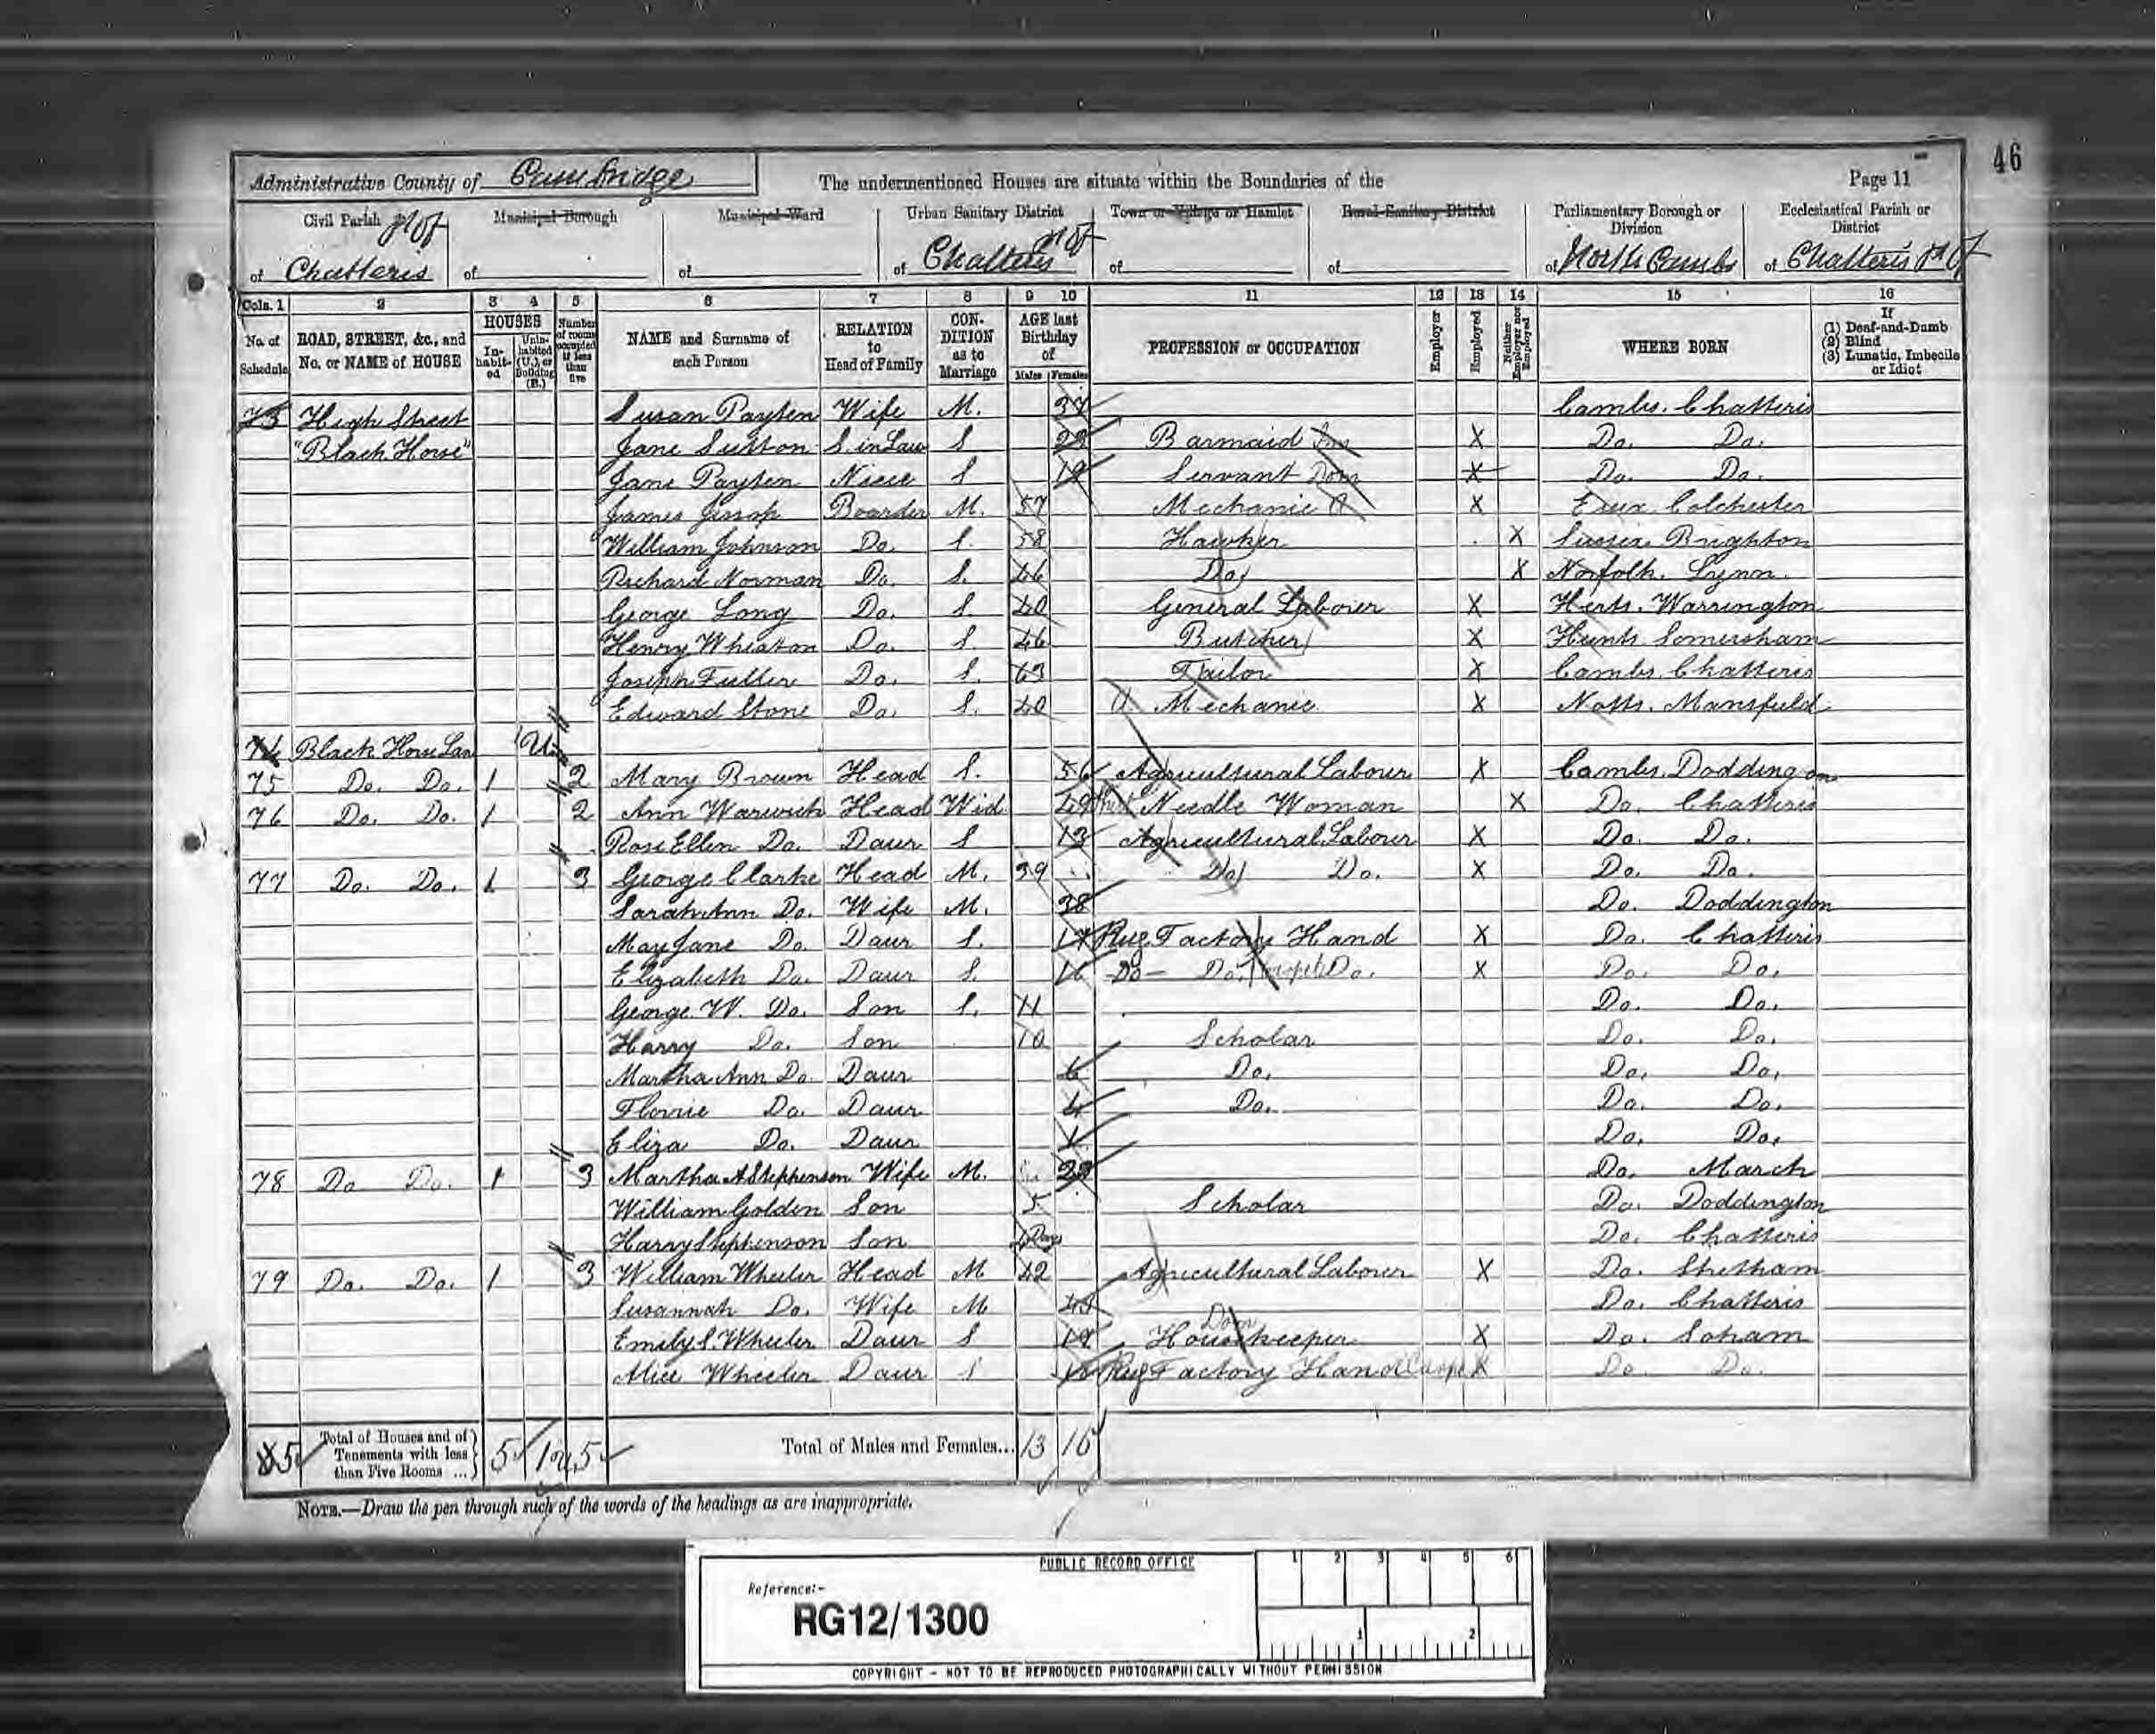 46
Administrative County of Cambridge The undermentioned Houses are situate within the Boundaries of the Page 11
Civil Parish pt of Municipal Borough Municipal Ward Urban Sanitary District pt of Town or Village or Hamlet Rural Sanitary District Parliamentary Borough or Division Ecclesiastical Parish or District
of Chatteris of of of Chatteris of of of North Cambs of Chatteris pt of
Cols. 1 2 3 4 5 6 7 8 9 10 11 12 13 14 15 16
No. of Schedule ROAD, STREET, &c., and No. or NAME of HOUSE HOUSES In-habit-ed Unin-habited (U.), or Building (B.) Number of rooms occupied if less than five NAME and Surname of each Person RELATION to Head of Family CON-DITION as to Marriage AGE last Birthday of Males Females PROFESSION or OCCUPATION Employer Employed Neither Employer nor Employed WHERE BORN If (1) Deaf-and-Dumb (2) Blind (3) Lunatic, Imbecile or Idiot
73 High Street Susan Payten Wife M. 37 Cambs. Chatteris
"Black Horse" Jane Sutton S. in Law S Barmaid Inn X Do. Do.
Jane Payten Niece S 19 Servant Dom X Do. Do.
James Jessop Boarder M. 57 Mechanic X Essex Colchester
William Johnson Do. S. 58 Hawker X Sussex Brighton
Richard Norman Do. S. 46 Do. X Norfolk. Lynn.
George Long Do. S. 40 General Labourer X Herts. Warrington
Henry Wheaton Do. S. 46 Butcher X Hunts Somersham
Joseph Fuller Do. S. 63 Tailor X Cambs. Chatteris
Edward Stone Do. S. 40 Mechanic X Notts. Mansfield
74 Black Horse Lan 1 U
75 Do. Do. 1 2 Mary Brown Head S. 56 Agricultural Labourer X Cambs. Doddington
76 Do. Do. 1 2 Ann Warwick Head Wid 49 Needle Woman X Do. Chatteris
Rose Ellen Do. Daur S 13 Agricultural Labourer X Do. Do.
77 Do. Do. 1 3 George Clarke Head M. 39 Do. Do. X Do. Do.
Sarah Ann Do. Wife M. 38 Do. Doddington
May Jane Do. Daur S. 17 Rug Factory Hand X Do. Chatteris
Elizabeth Do. Daur S. 16 Do. Do. Do. X Do. Do.
George W. Do. Son S. 11 Do. Do.
Harry Do. Son 10 Scholar Do. Do.
Martha Ann Do. Daur 6 Do. Do. Do.
Florrie Do. Daur 4 Do. Do. Do.
Eliza Do. Daur 1 Do. Do.
78 Do Do. 1 3 Martha A Stephenson Wife M. Do. March
William Golden Son 5 Scholar Do. Doddington
Harry Stephenson Son Days Do. Chatteris
79 Do. Do. 1 3 William Wheeler Head M 42 Agricultural Labourer X Do. Stretham
Susannah Do. Wife M Do. Chatteris
Emily S. Wheeler Daur S 19 Dom Housekeeper X Do. Soham
Alice Wheeler Daur S Rug Factory Hand X Do. Do.
5 Total of Houses and of Tenements with less than Five Rooms ... 5 1 u 5 Total of Males and Females... 13 16
NOTE.—Draw the pen through such of the words of the headings as are inappropriate.
PUBLIC RECORD OFFICE 1 2 3 4 5 6
Reference:-
RG12/1300
1 2
COPYRIGHT - NOT TO BE REPRODUCED PHOTOGRAPHICALLY WITHOUT PERMISSION